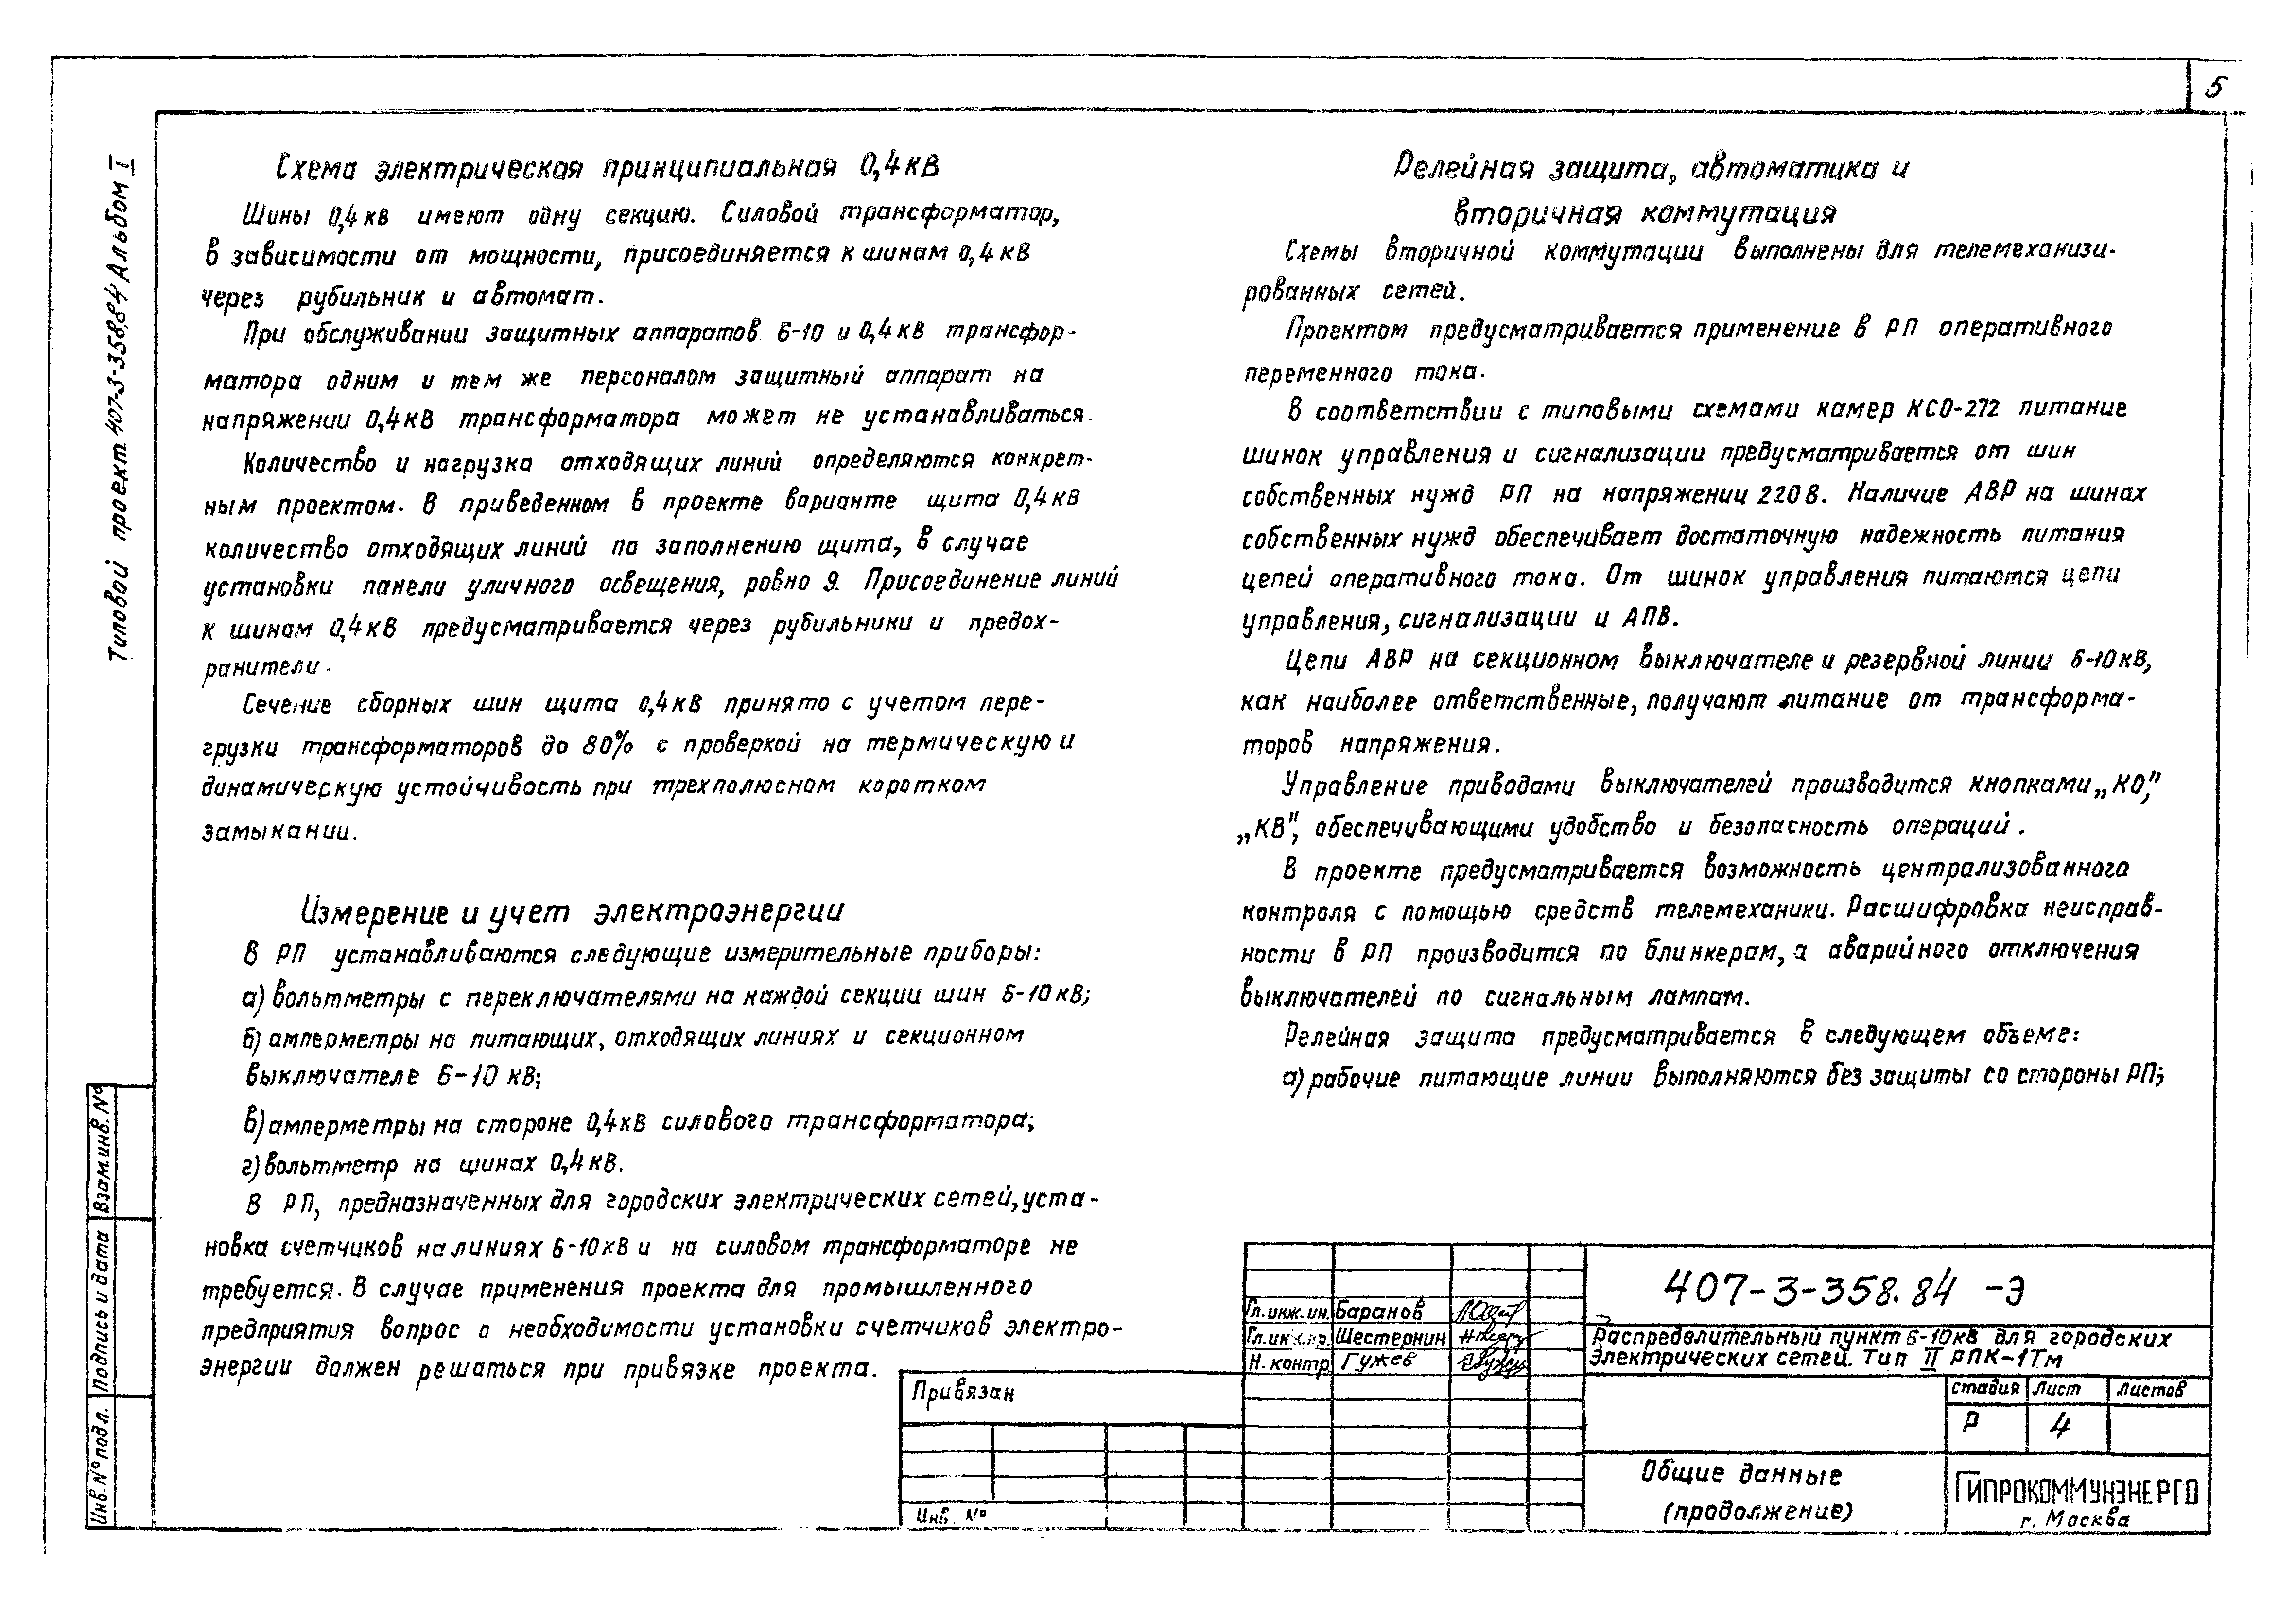 5
Типовой проект 407-3-358.84 Альбом I
Схема электрическая принципиальная 0,4кВ
Шины 0,4кв имеют одну секцию. Силовой трансформатор,
в зависимости от мощности, присоединяется к шинам 0,4кВ
через рубильник и автомат.
При обслуживании защитных аппаратов 6-10 и 0,4кВ трансфор-
матора одним и тем же персоналом защитный аппарат на
напряжении 0,4кВ трансформатора может не устанавливаться.
Количество и нагрузка отходящих линий определяются конкрет-
ным проектом. В приведенном в проекте варианте щита 0,4кВ
количество отходящих линий по заполнению щита, в случае
установки панели уличного освещения, ровно 9. Присоединение линий
к шинам 0,4кВ предусматривается через рубильники и предох-
ранители.
Сечение сборных шин щита 0,4кВ принято с учетом пере-
грузки трансформаторов до 80% с проверкой на термическую и
динамическую устойчивость при трехполюсном коротком
замыкании.
Измерение и учет электроэнергии
В РП устанавливаются следующие измерительные приборы:
а) вольтметры с переключателями на каждой секции шин 6-10кВ;
б) амперметры на питающих, отходящих линиях и секционном
выключателе 6-10 кВ;
в) амперметры на стороне 0,4кВ силового трансформатора;
г) вольтметр на шинах 0,4кВ.
В РП, предназначенных для городских электрических сетей, уста-
новка счетчиков на линиях 6-10кВ и на силовом трансформаторе не
требуется. В случае применения проекта для промышленного
предприятия вопрос о необходимости установки счетчиков электро-
энергии должен решаться при привязке проекта.
Релейная защита, автоматика и
вторичная коммутация
Схемы вторичной коммутации выполнены для телемеханизи-
рованных сетей.
Проектом предусматривается применение в РП оперативного
переменного тока.
В соответствии с типовыми схемами камер КСО-272 питание
шинок управления и сигнализации предусматривается от шин
собственных нужд РП на напряжении 220В. Наличие АВР на шинах
собственных нужд обеспечивает достаточную надежность питания
цепей оперативного тока. От шинок управления питаются цепи
управления, сигнализации и АПВ.
Цепи АВР на секционном выключателе и резервной линии 6-10кВ,
как наиболее ответственные, получают питание от трансформа-
торов напряжения.
Управление приводами выключателей производится кнопками „КО",
„КВ", обеспечивающими удобство и безопасность операций.
В проекте предусматривается возможность централизованного
контроля с помощью средств телемеханики. Расшифровка неисправ-
ности в РП производится по блинкерам, а аварийного отключения
выключателей по сигнальным лампам.
Релейная защита предусматривается в следующем объеме:
а) рабочие питающие линии выполняются без защиты со стороны РП;
Взам.инв.№
Подпись и дата
Инв.№подл.
Привязан
Инв. №
Гл.инж.ин. Баранов
Гл.инж.пр. Шестернин
Н. контр. Гужев
407-3-358.84 -Э
Распределительный пункт 6-10кВ для городских
электрических сетей. Тип II РПК-1Тм
стадия Лист Листов
Р 4
Общие данные
(продолжение)
ГИПРОКОММУНЭНЕРГО
г. Москва